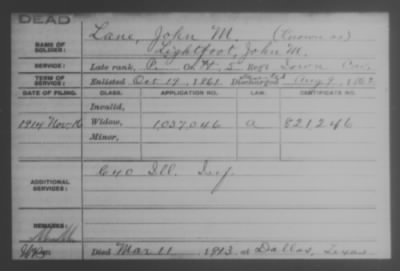 DEAD
NAME OF SOLDIER: Lane, John M. (Known as)
Lightfoot, John M.
SERVICE: Late rank, P Co. H, 5 Reg't Iowa Cav.
TERM OF SERVICE: Enlisted Oct 19, 1861 Discharged Deserted Aug 9, 1862
DATE OF FILING. CLASS. APPLICATION NO. LAW. CERTIFICATE NO.
Invalid,
1914 Nov Widow, 1,037,046 a 821246
Minor,
ADDITIONAL SERVICES: C 40 Ill. Inf.
REMARKS:
Died Mar 11, 1913, at Dallas, Texas